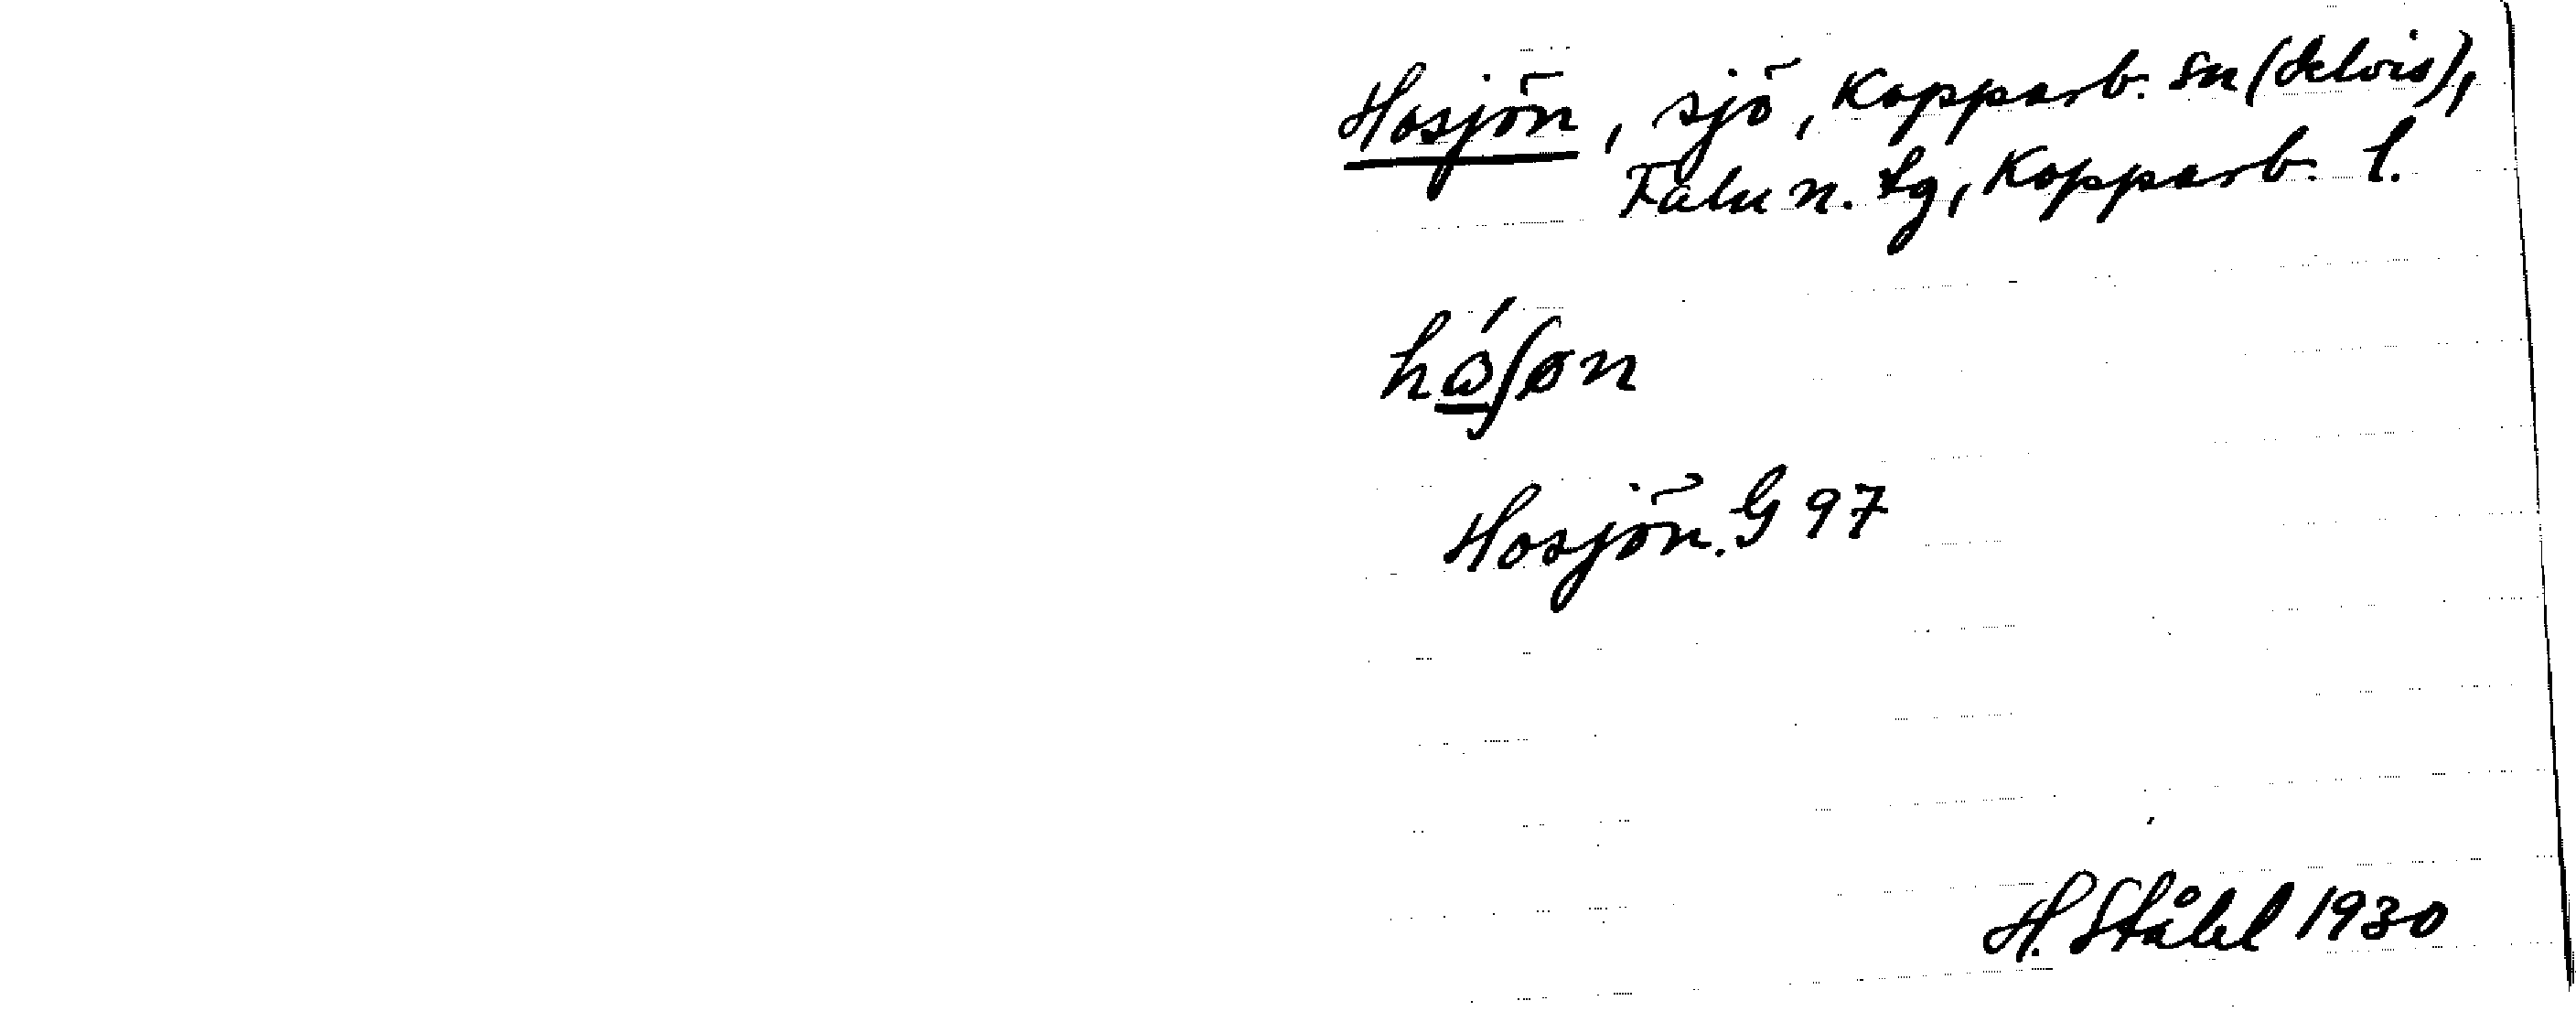 Hosjön, sjö, Kopparb. sn (delvis),
Falu n. tg, Kopparb. l.
hɷ́ʃøn
Hosjön. G 97
H. Ståhl 1930